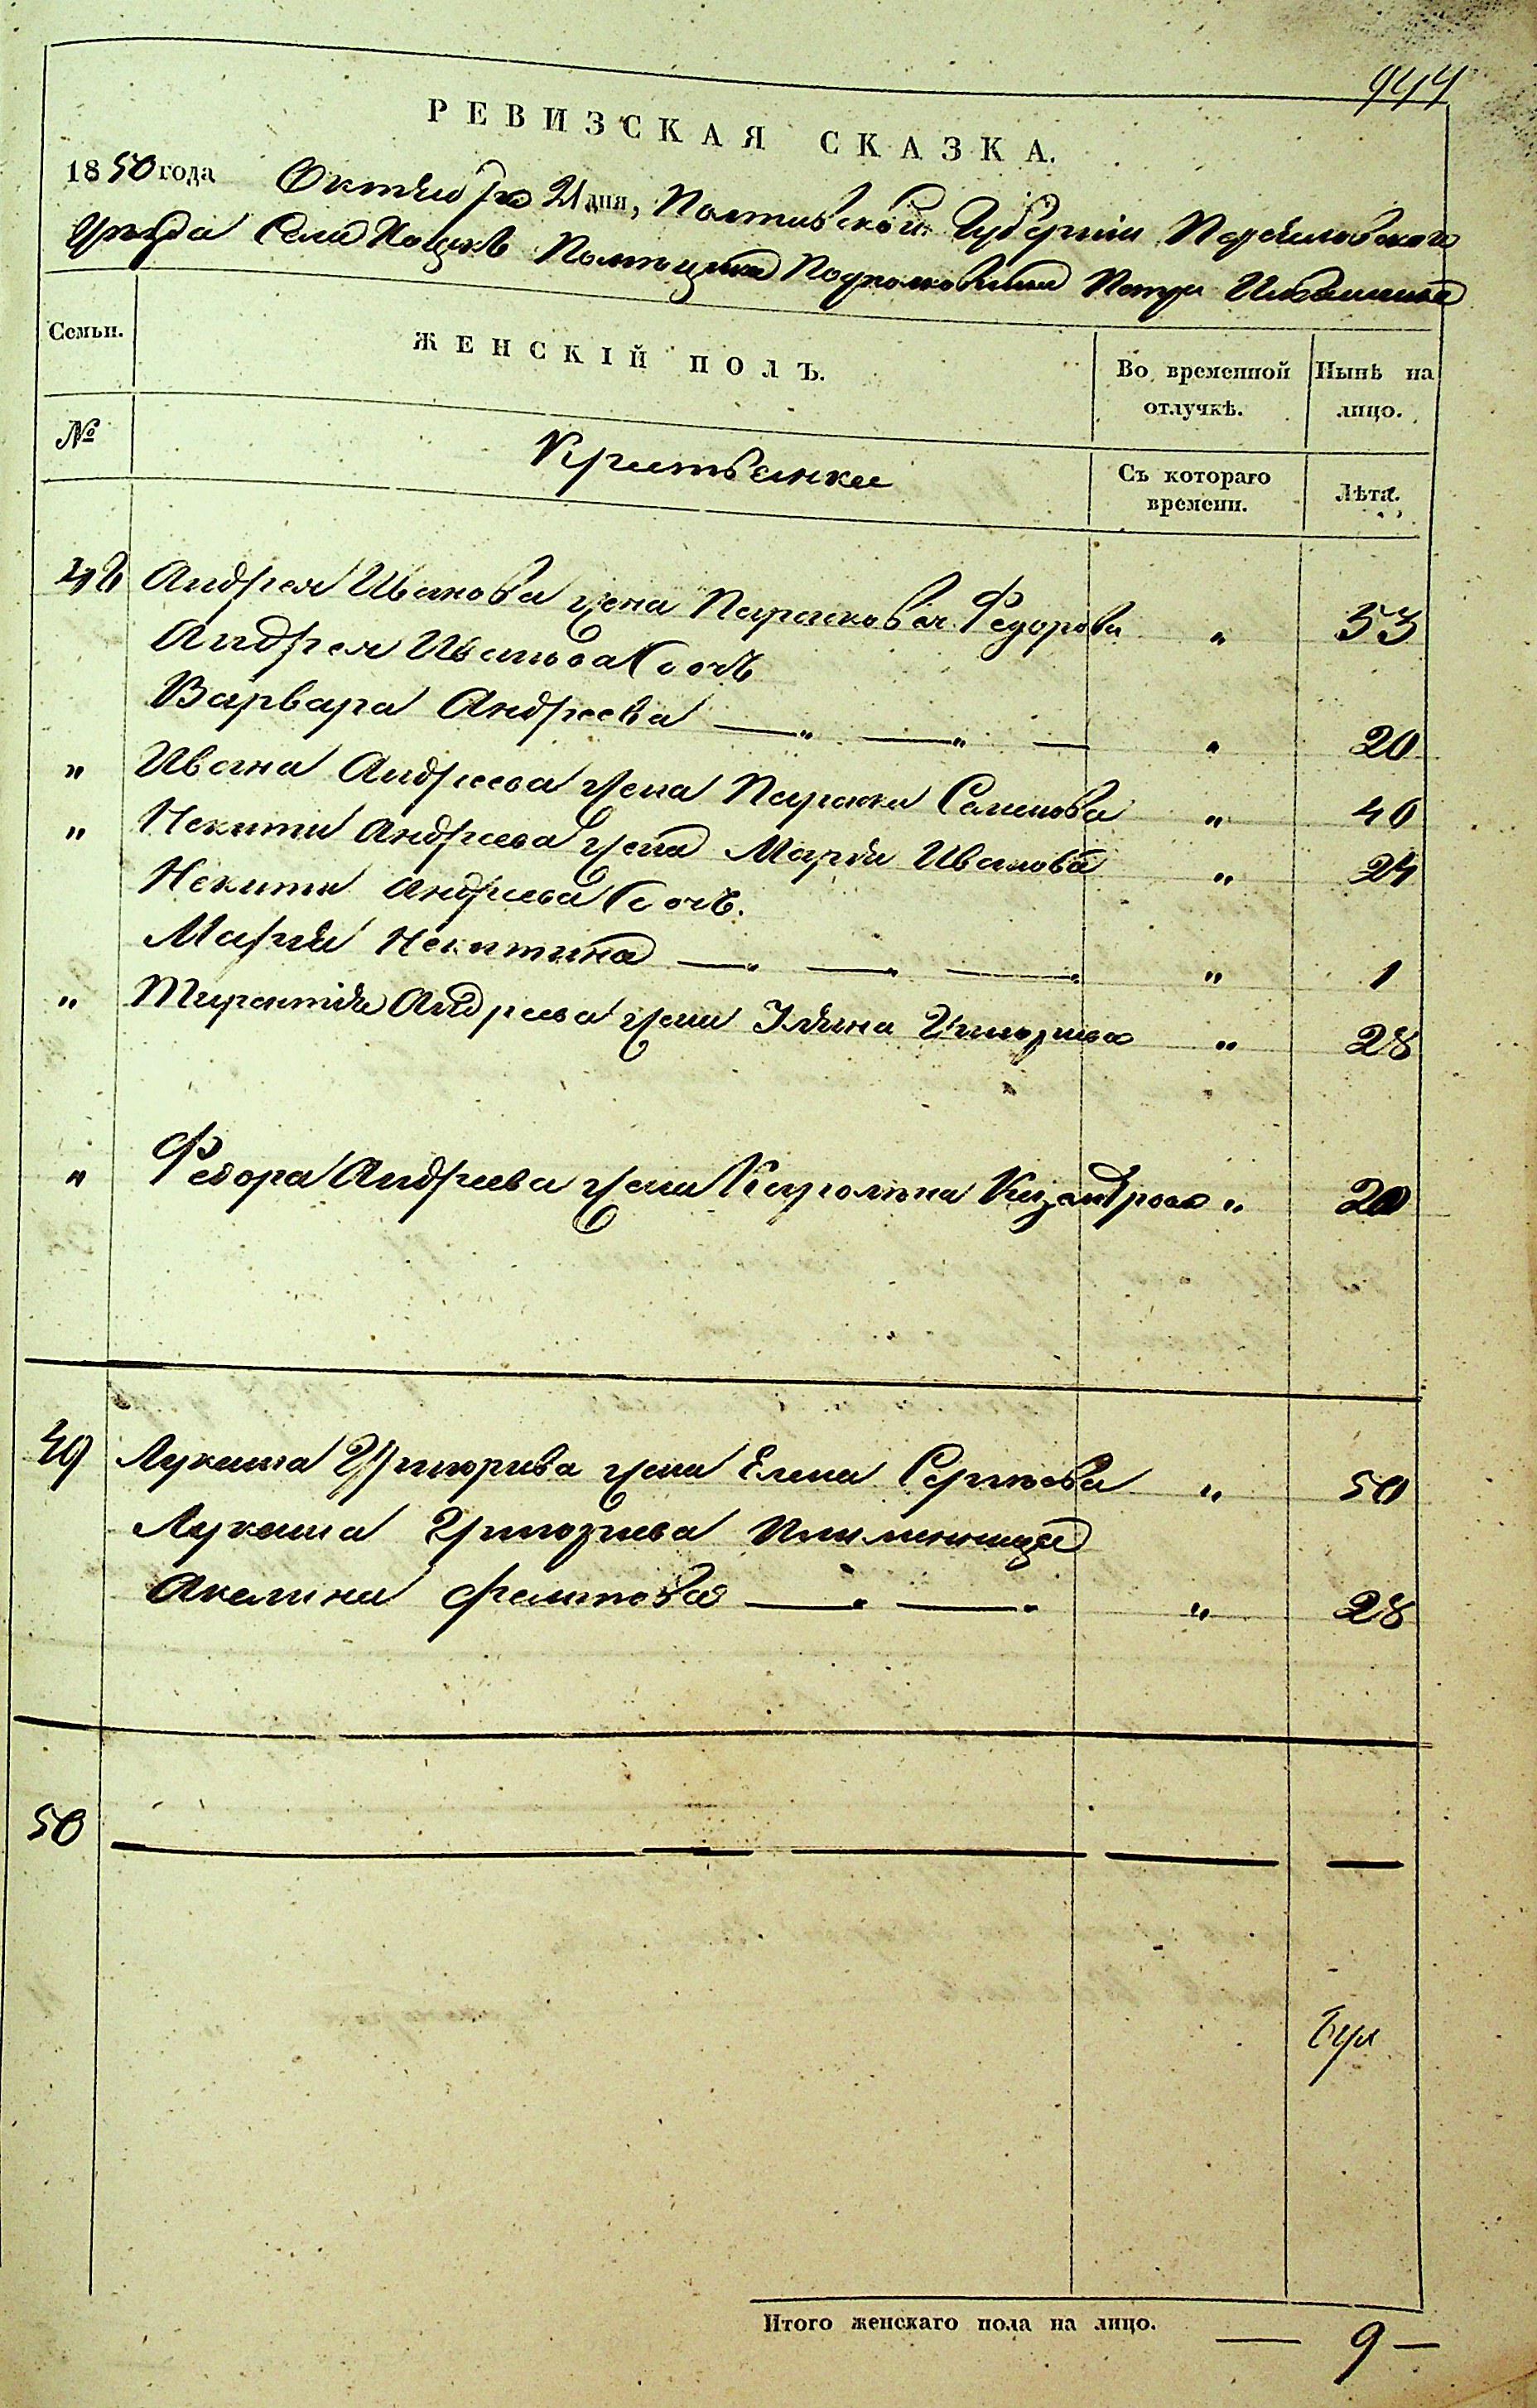 444
РЕВИЗСКАЯ СКАЗКА.
1850 года Октября 21 дня, Полтавской Губернии Переяславского
Уезда Села Помещика Подполковника Петра
Семьи.
ЖЕНСКІЙ ПОЛЪ.
Во временной отлучкѣ.
Нынѣ на лицо.
№
Крестьянки
Съ котораго времени.
Лѣта.
48 Андрея Иванова жена Парасковея Федорова " 53
Андрея Иванова дочь
Варвара Андреева — " — " — " 20
" Ивана Андреева жена Параска Семенова " 40
" Некиты Андреева жена Мария Иванова " 24
Некиты Андреева дочь.
Мария Некитина — " — " — " " 1
" Терентия Андреева жена Григориева " 28
" Федора Андреева жена " 20
49 Лукаша Григориева жена Елена Сергиева " 50
Лукаша Григориева племенница
Акелина Филипова — " — " " 28
50 — — — — —
Итого женскаго пола на лицо. — 9 —